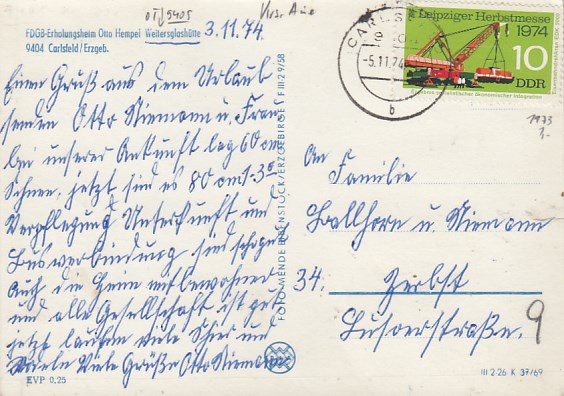 OTJ 9405
Vers. Aue
FDGB-Erholungsheim Otto Hempel Weitersglashütte
9404 Carlsfeld/Erzgeb.
3.11.74.
Einen Gruß aus dem Urlaub
senden Otto Niemann u. Frau
bei unserer Ankunft lag 60 cm
Schnee, jetzt sind es 80 cm -3°
Verpflegung Unterkunft und
Busverbindung sind schön
Auch die Heim mitbewohner
und alle Gesellschaft ist gut
jetzt laufen viele Schier und
Viele Grüße Otto Niemann
EVP 0,25
FOTO-MENDE EIBENSTOCK/ERZGEBIRGE F III 2 9/58
CARLSFELD
-5.11.74
b
Leipziger Herbstmesse
1974
10
DDR
1973
3,-
An
Familie
Ballhorn u. Niemann
34. Zerbst
Lusoerstraße. 9
III 2-26 K 37/69